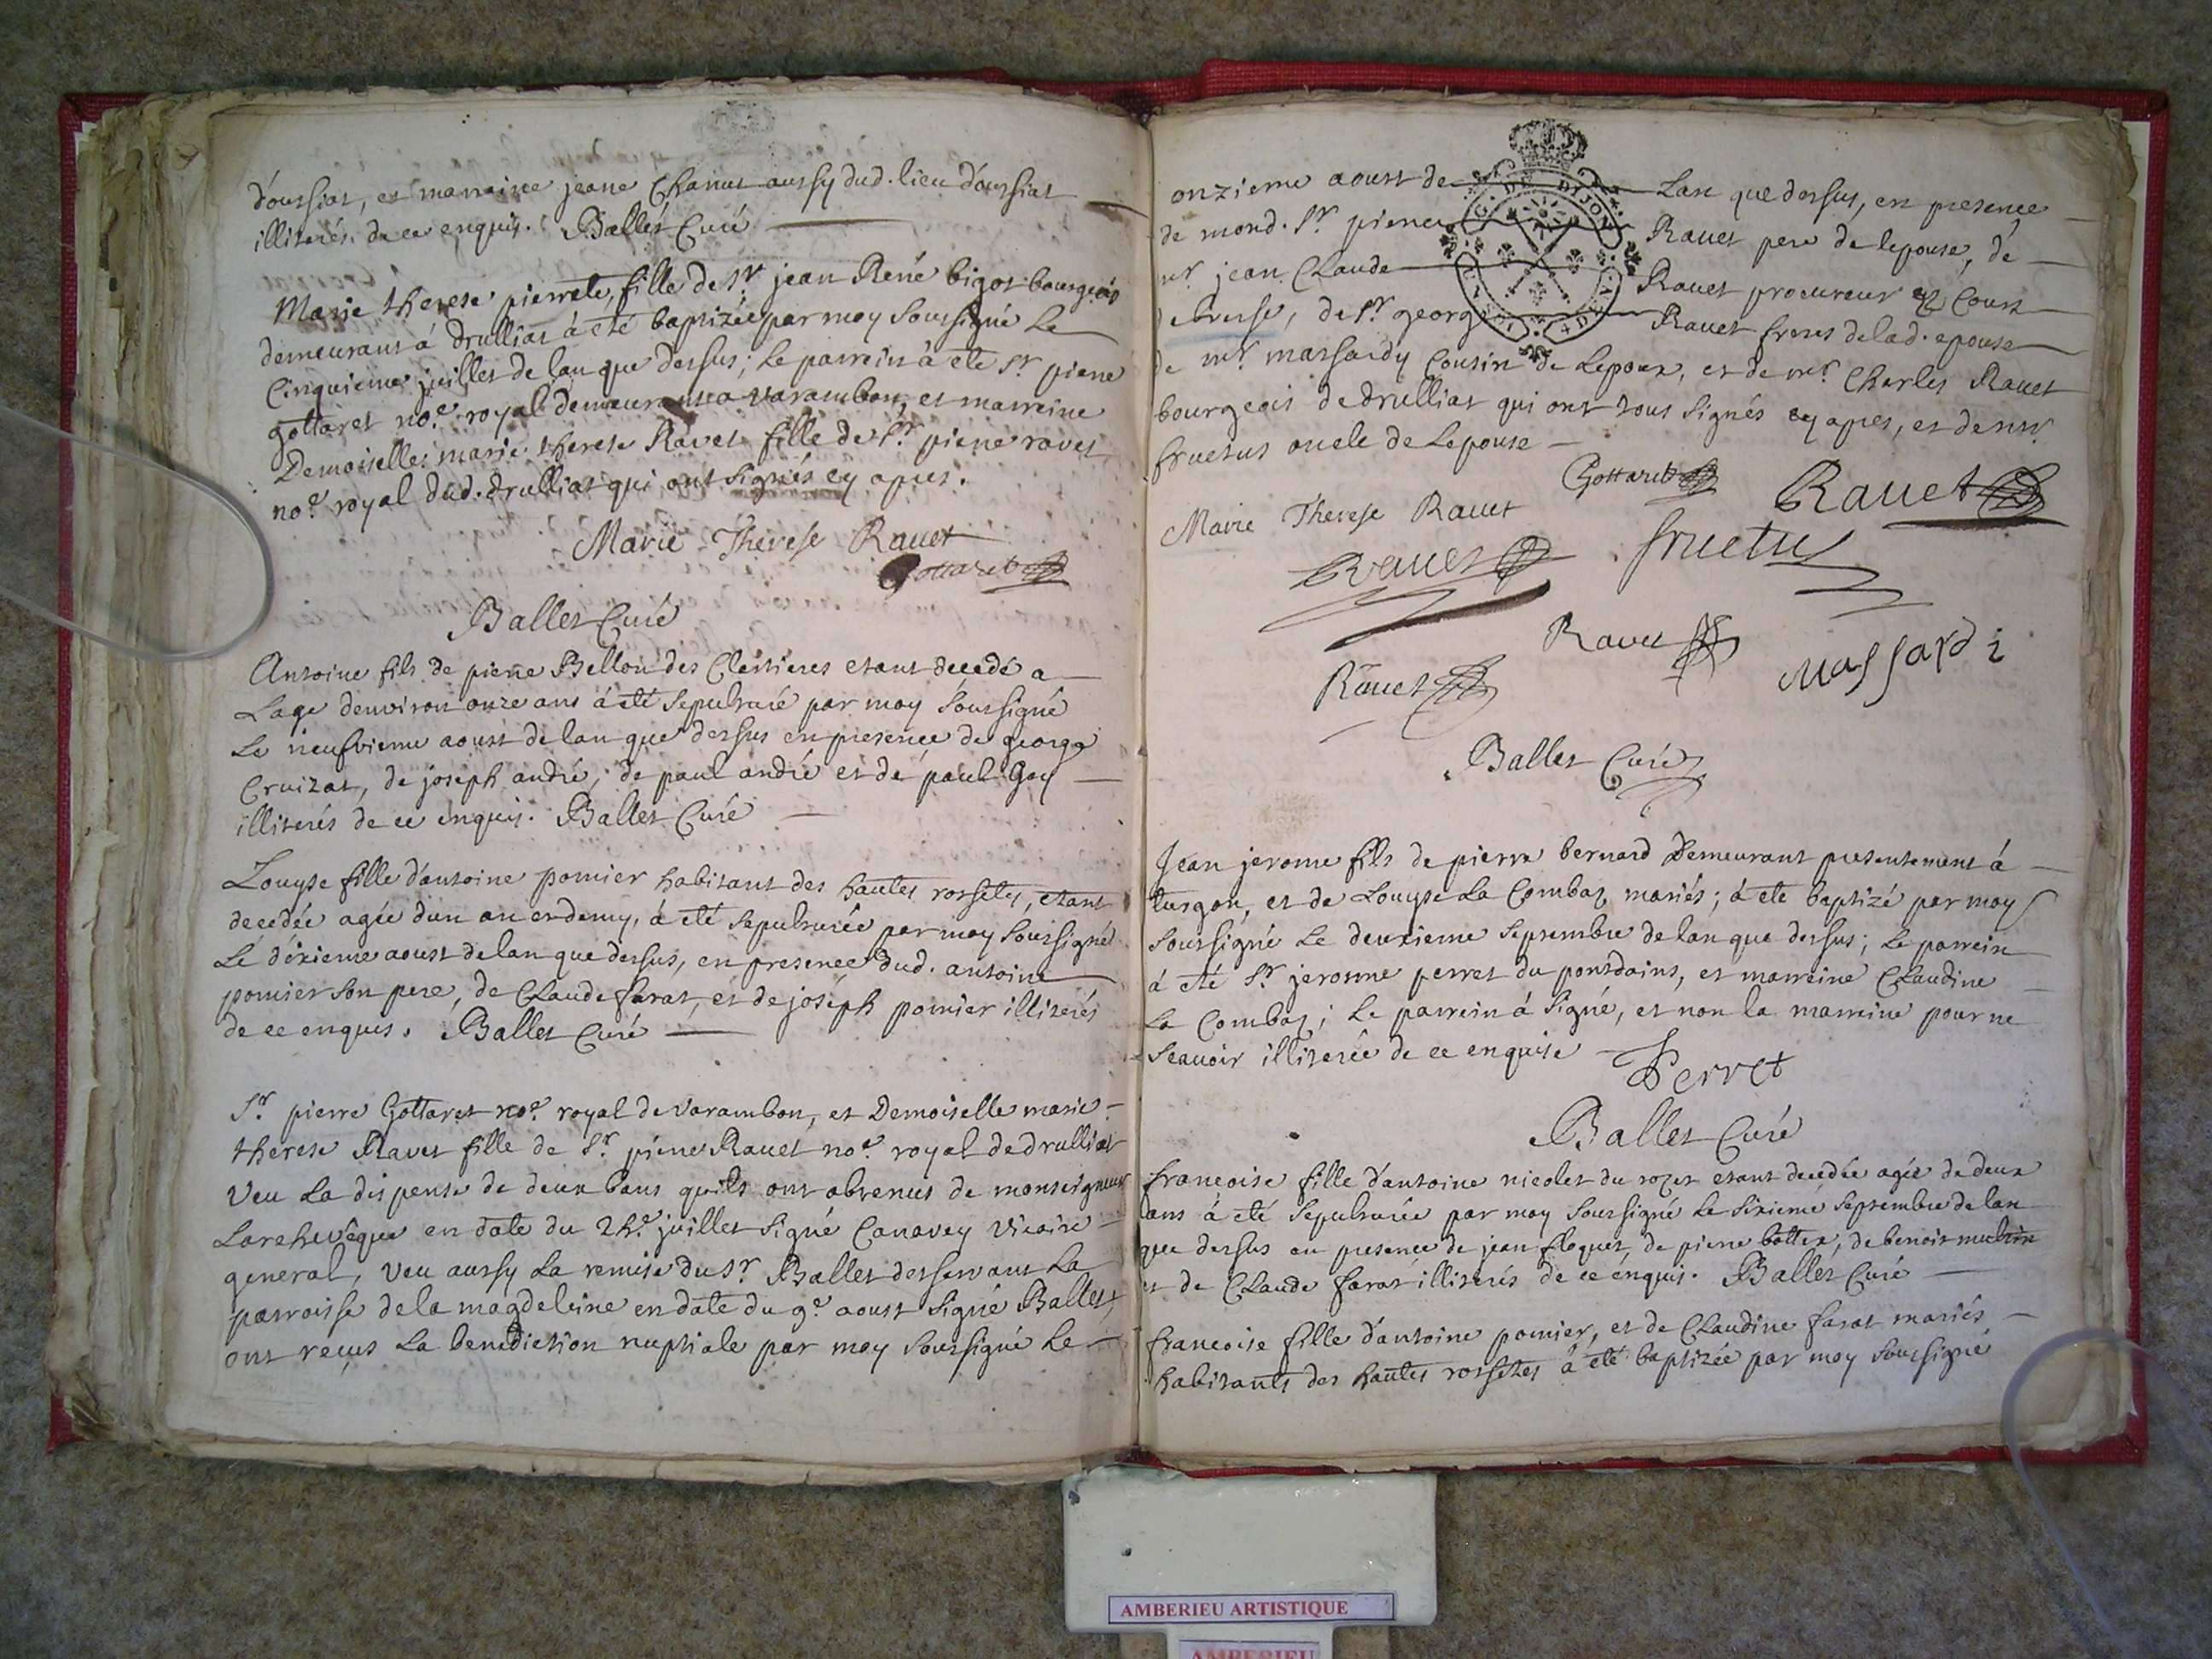 d'oussiat, et marraine jeane Chanut aussy dud. lieu d'oussiat
illiterés de ce enquis. Ballet Curé
Marie therese pierrete, fille de Sr. jean René bigot bourgeois
demeurant á drulliat á eté baptizée par moy soussigné le
Cinquieme juillet de lan que dessus; le parrein á eté Sr. pierre
gottaret no.e royal demeurant a varambon, et marreine
Demoiselle marie therese Ravet fille de Sr. pierre ravet
no.e royal dud. drulliat qui ont signés cy apres.
Marie Therese Rauet
Gottaret
Ballet Curé
Antoine fils de pierre Bellon des Clertieres etant decedé a
Lage denviron onze ans á eté sepulturé par moy soussigné
Le neufvieme aoust de lan que dessus en presence de george
Cruizat, de joseph andré, de paul andré et de paul Goy
illiterés de ce enquis. Ballet Curé
Louyse fille d'antoine pomier habitant des hautes rossetes, etant
decedée agée dun an et demy, á eté sepulturée par moy soussigné
Lé déxieme aoust de lan que dessus, en presence dud. antoine
pomier son pere, de Claude farat, et de joseph pomier illiterés
de ce enquis. Ballet Curé
Sr. pierre Gottaret no.e royal de varambon, et Demoiselle marie
therese Ravet fille de Sr. pierre Rauet no.e royal de drulliat
Veu La dispense de deux bans quils ont obtenus de monseigneur
Larchevêque en date du 2h.e juillet signé Canavey vicaire
general, veu aussy La remise du Sr. Ballet desservant La
parroisse de la magdeleine en date du 9.e aoust signé Ballet,
ont reçus La benediction nuptiale par moy soussigné Le
onzieme aoust de Lan que dessus, en presence
de mond. Sr. pierre Rauet pere de lepouse, de
mr. jean Claude Rauet procureur es Cours
de bresse, de Sr. george Rauet freres de lad. epouse
de mr. massardy Cousin de Lepoux, et de mr. Charles Rauet
bourgeois de drulliat qui ont tous signés cy apres, et de mr.
fructus oncle de Lepouse
DE DIJON
Gottaret Rauet
Marie Therese Rauet
Rauet fructus
Rauet massardi
Rauet
Ballet Curé
Jean jerome fils de pierre bernard Demeurant presentement á
turgon, et de Louyse La Combaz mariés; á eté baptizé par moy
soussigné Le deuxieme septembre de lan que dessus; Le parrein
á eté Sr. jerosme perret du pontdains, et marreine Claudine
La Combaz; Le parrein á signé, et non la marreine pour ne
sçauoir illiterée de ce enquise Perret
Ballet Curé
francoise fille d'antoine nicolet du rozet etant decedée agée de deux
ans á eté sepulturée par moy soussigné Le sixieme septembre de lan
que dessus en presence de jean floquet, de pierre bottex, de benoit multin
et de Claude farat illiterés de ce enquis. Ballet Curé
francoise fille d'antoine pomier, et de Claudine farat mariés
habitants des hautes rossetes á eté baptizée par moy soussigné
AMBERIEU ARTISTIQUE
AMBERIEU